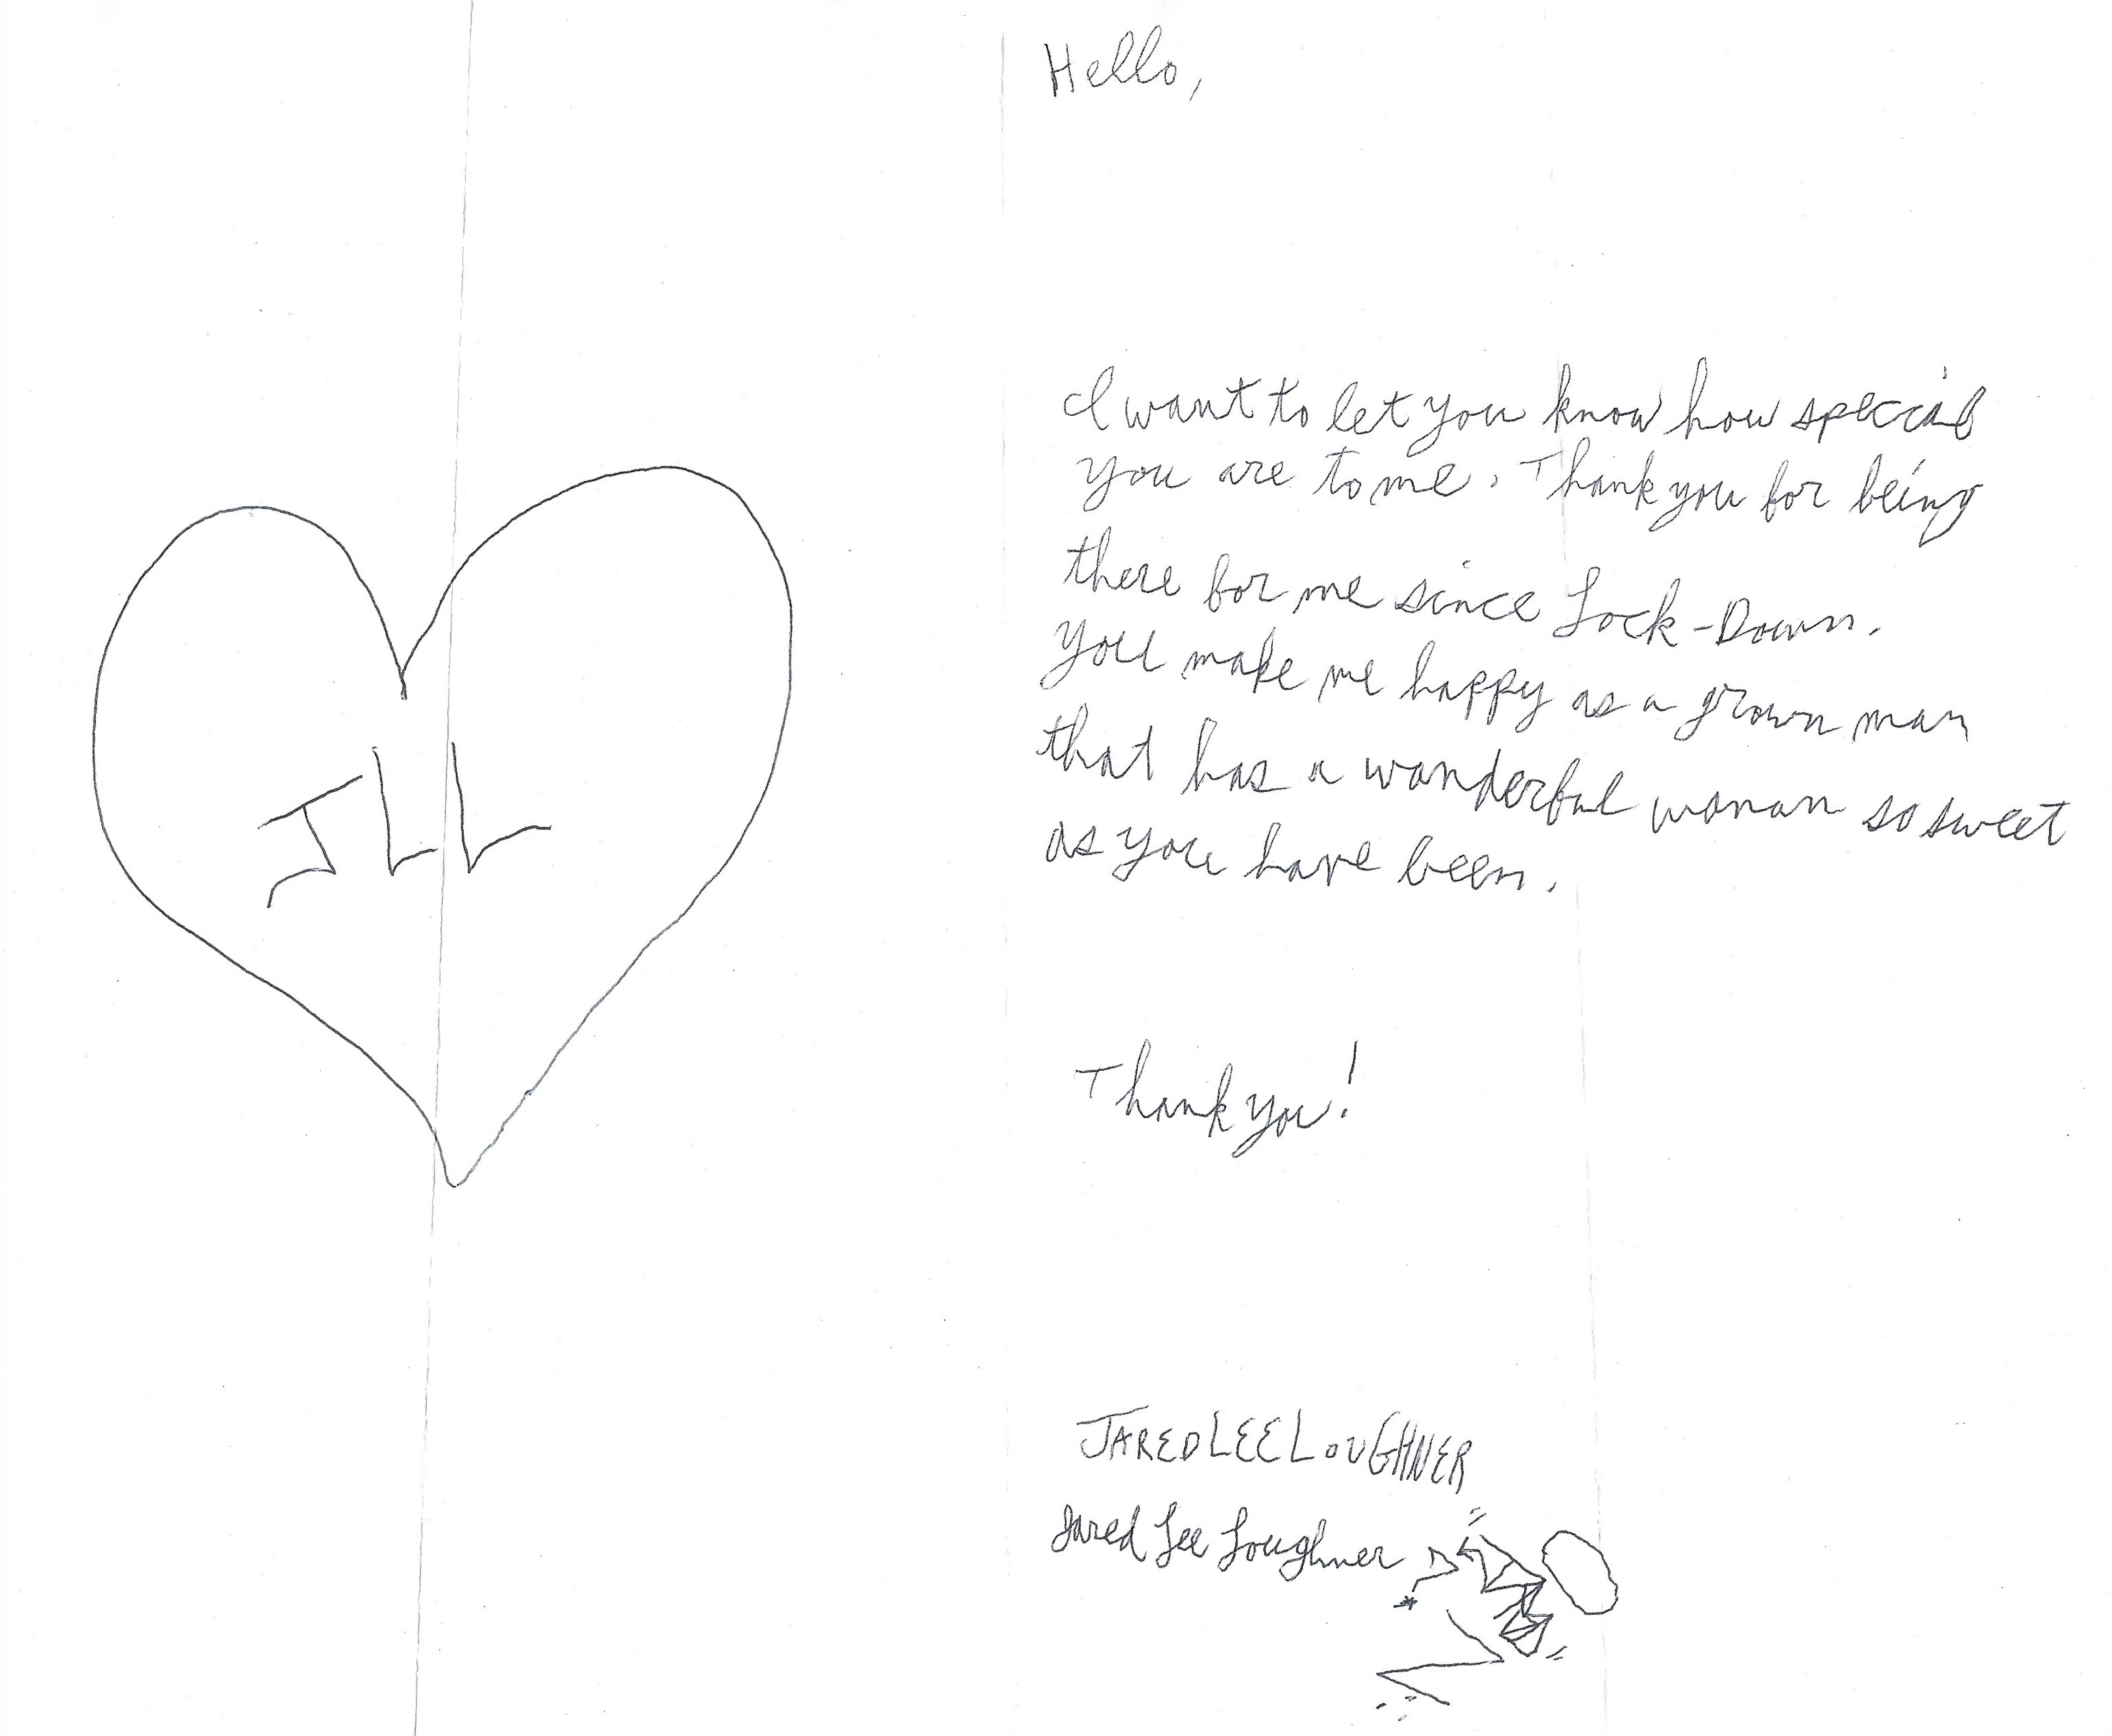 JLL
Hello,
I want to let you know how special
you are to me. Thank you for being
there for me since Lock-Down.
you make me happy as a grown man
that has a wonderful woman so sweet
as you have been.
Thank you!
JARED LEE LOUGHNER
Jared Lee Loughner